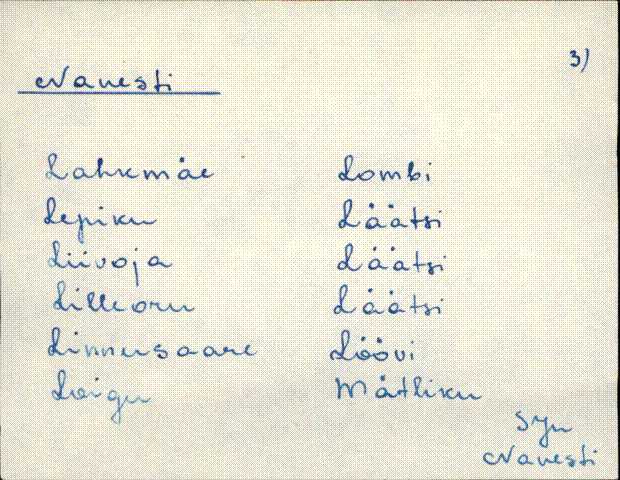 3)
Navesti
Lahkmäe Lombi
Lepiku Läätsi
Liivoja Läätsi
Lilleoru Läätsi
Linnusaare Löövi
Loigu Mätliku
Sjn
Navesti